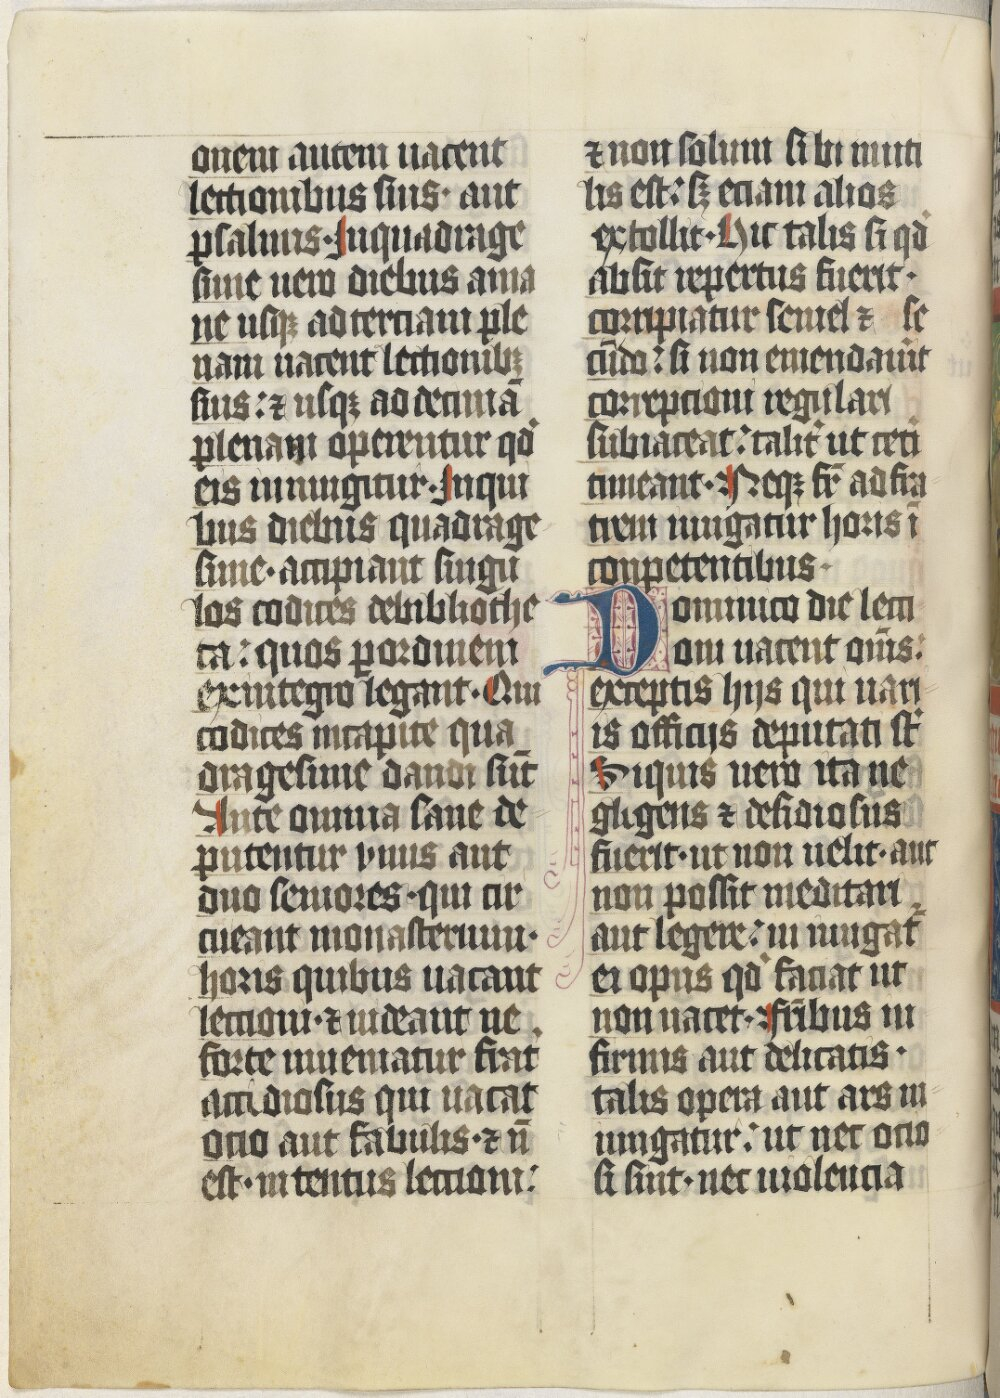 onem autem uacent
lectionibus suis· aut
psalmis· Inquadrage
sime uero diebus ama
ne usqꝫ adterciam ple
nam uacent lectionibꝫ
suis: ⁊ usqꝫ addecimā
plenam operentur qd̛
eis iniungitur· Inqui
bus diebus quadrage
sime· accipiant singu
los codices debibliothe
ca: quos ꝑordinem
exintegro legant· Qui
codices incapite qua
dragesime dandi sūt
Ante omnia sane de
putentur ynus aut
duo seniores· qui cir
cueant monasterium·
horis quibus uacant
lectioni· ⁊ uideant ne
forte inueniatur frat̛
accidiosus qui uacat
ocio aut fabulis· ⁊ n̄
est· intentus lectioni:
⁊ non solum si bi inuti
lis est: sꝫ eciam alios
extollit· Hic talis si qd̛
absit repertus fuerit·
corripiatur semel ⁊ se
cūdo: si non emendaưit
correpcioni regulari
subiaceat: talit̛ ut cet̛i
timeant· Neqꝫ fr̄ ad fra
trem iungatur horis ī
conpetentibus·
Dominico die lecti
oni uacent om̄s:
exceptis hijs qui uari
is officijs deputati st̄
Siquis uero ita ne
gligens ⁊ desidiosus
fuerit· ut non uelit· aut
non possit meditari
aut legere: iniungat̛
ei opus qd̛ faciat ut
non uacet· Fr̄ibus in
firmis aut delicatis·
talis opera aut ars in
iungatur: ut nec ocio
si sint· nec uiolencia